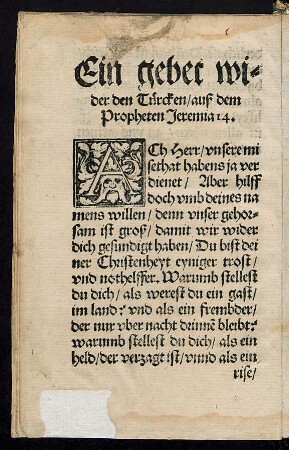 Ein gebet wi-
der den Türcken/ auß dem
Propheten Jeremia 14.
ACh Herr/ vnsere mi
sethat habens ja ver
dienet/ Aber hilff
doch vmb deines na
mens willen/ denn vnser gehor-
sam ist groß/ damit wir wider
dich gesundigt haben/ Du bist dei
ner Christenheyt eyniger trost/
vnd nothelffer. Warumb stellest
du dich/ als werest du ein gast/
im land: vnd als ein frembder/
der nur vber nacht drinnē bleibt:
warumb stellest du dich/ als ein
held/ der verzagt ist/ vnnd als ein
rise/